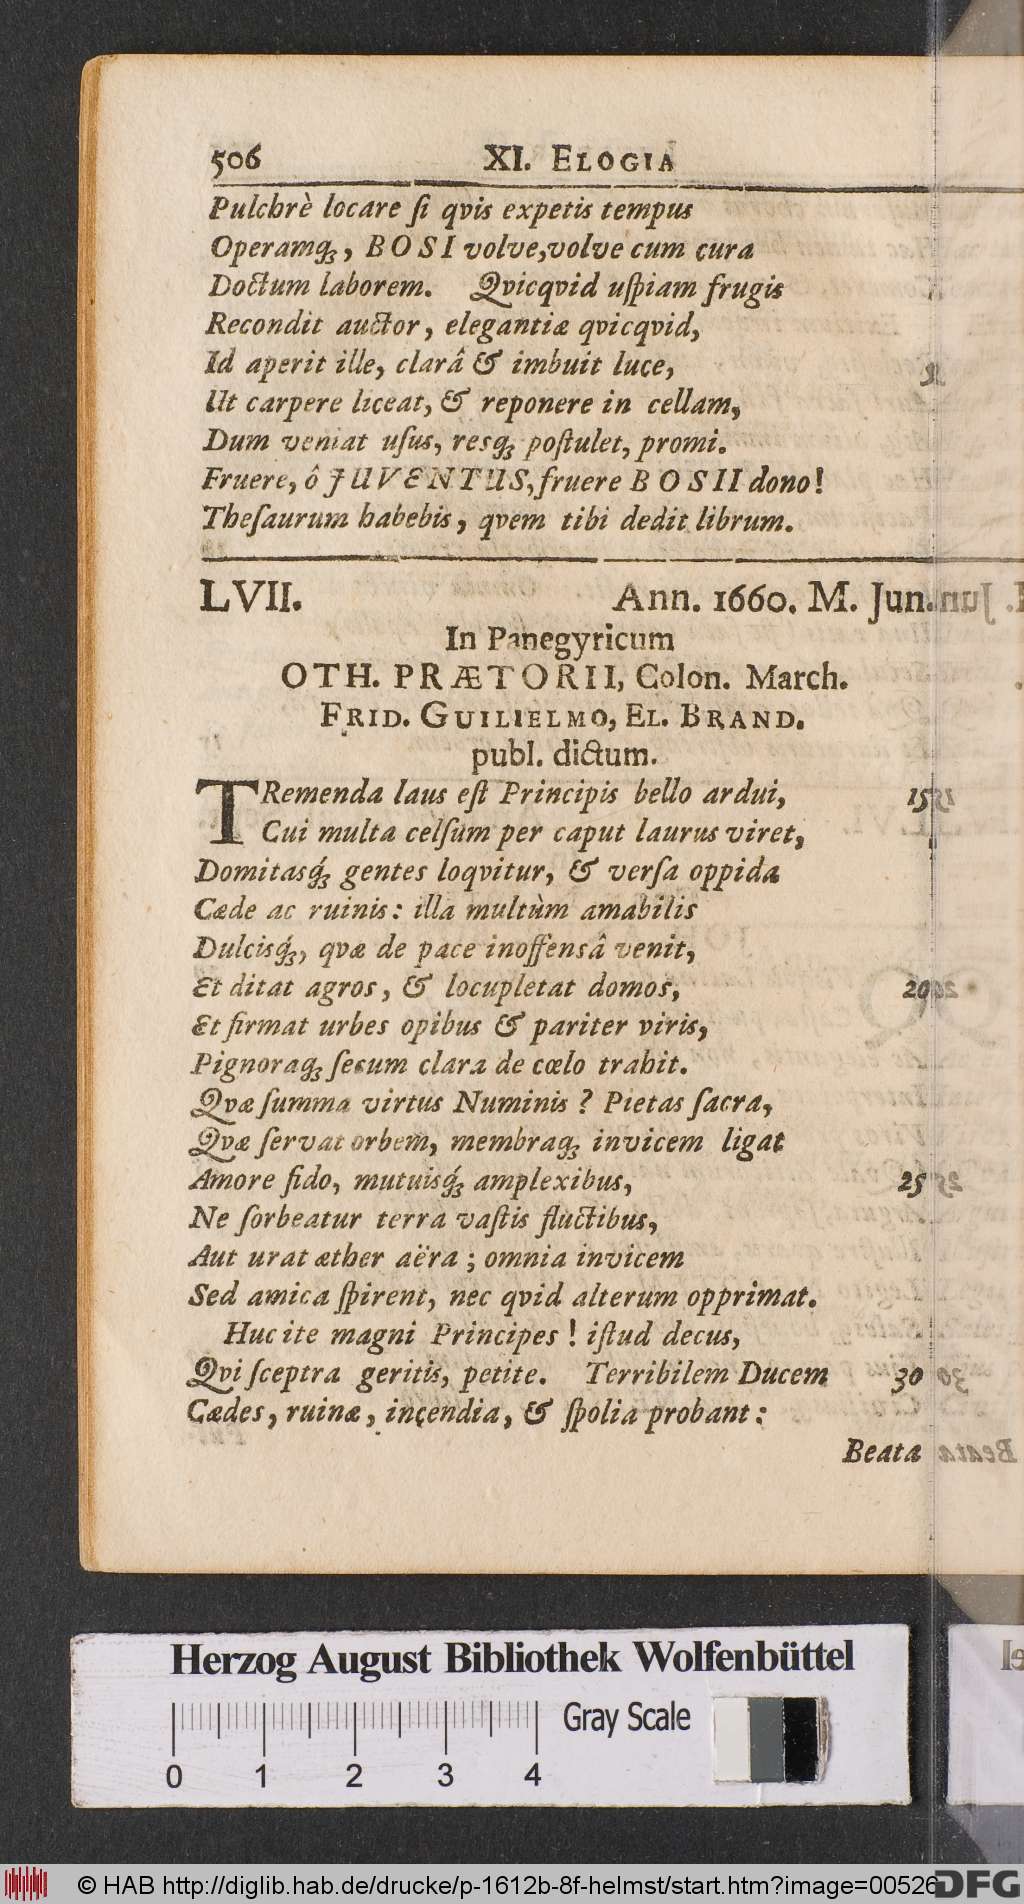 506 XI. ELOGIA
Pulchrè locare ſi qvis expetis tempus
Operamq́;, BOSI volve, volve cum cura
Doctum laborem. Qvicqvid uſpiam frugis
Recondit auctor, elegantiæ qvicqvid,
Id aperit ille, clarâ & imbuit luce,
Ut carpere liceat, & reponere in cellam,
Dum veniat uſus, resq; poſtulet, promi.
Fruere, ô JUVENTUS, fruere BOSII dono!
Theſaurum habebis, qvem tibi dedit librum.
LVII. Ann. 1660. M. Jun.
In Panegyricum
OTH. PRÆTORII, Colon. March.
FRID. GUILIELMO, EL. BRAND.
publ. dictum.
TRemenda laus eſt Principis bello ardui, 15
Cui multa celſum per caput laurus viret,
Domitasq́; gentes loqvitur, & verſa oppida
Cæde ac ruinis: illa multùm amabilis
Dulcisq́;, qvæ de pace inoffensâ venit,
Et ditat agros, & locupletat domos, 20
Et firmat urbes opibus & pariter viris,
Pignoraq; ſecum clara de cœlo trahit.
Qvæ ſumma virtus Numinis? Pietas ſacra,
Qvæ ſervat orbem, membraq; invicem ligat
Amore fido, mutuisq́; amplexibus, 25
Ne ſorbeatur terra vaſtis fluctibus,
Aut urat æther aëra; omnia invicem
Sed amica ſpirent, nec qvid alterum opprimat.
Huc ite magni Principes! iſtud decus,
Qvi ſceptra geritis, petite. Terribilem Ducem 30
Cædes, ruinæ, incendia, & ſpolia probant:
Beata
Herzog August Bibliothek Wolfenbüttel
Gray Scale
0 1 2 3 4
© HAB http://diglib.hab.de/drucke/p-1612b-8f-helmst/start.htm?image=00526
DFG